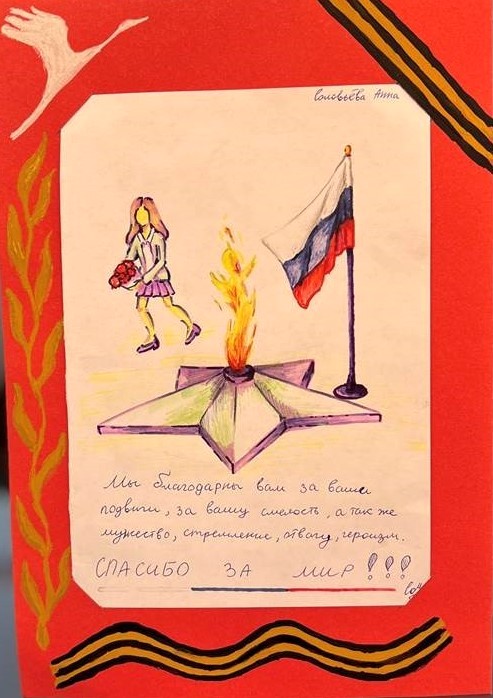 Соловьёва Анна
Мы благодарны вам за ваши
подвиги, за вашу смелость, а так же
мужество, стремление, отвагу, героизм.
СПАСИБО ЗА МИР!!!